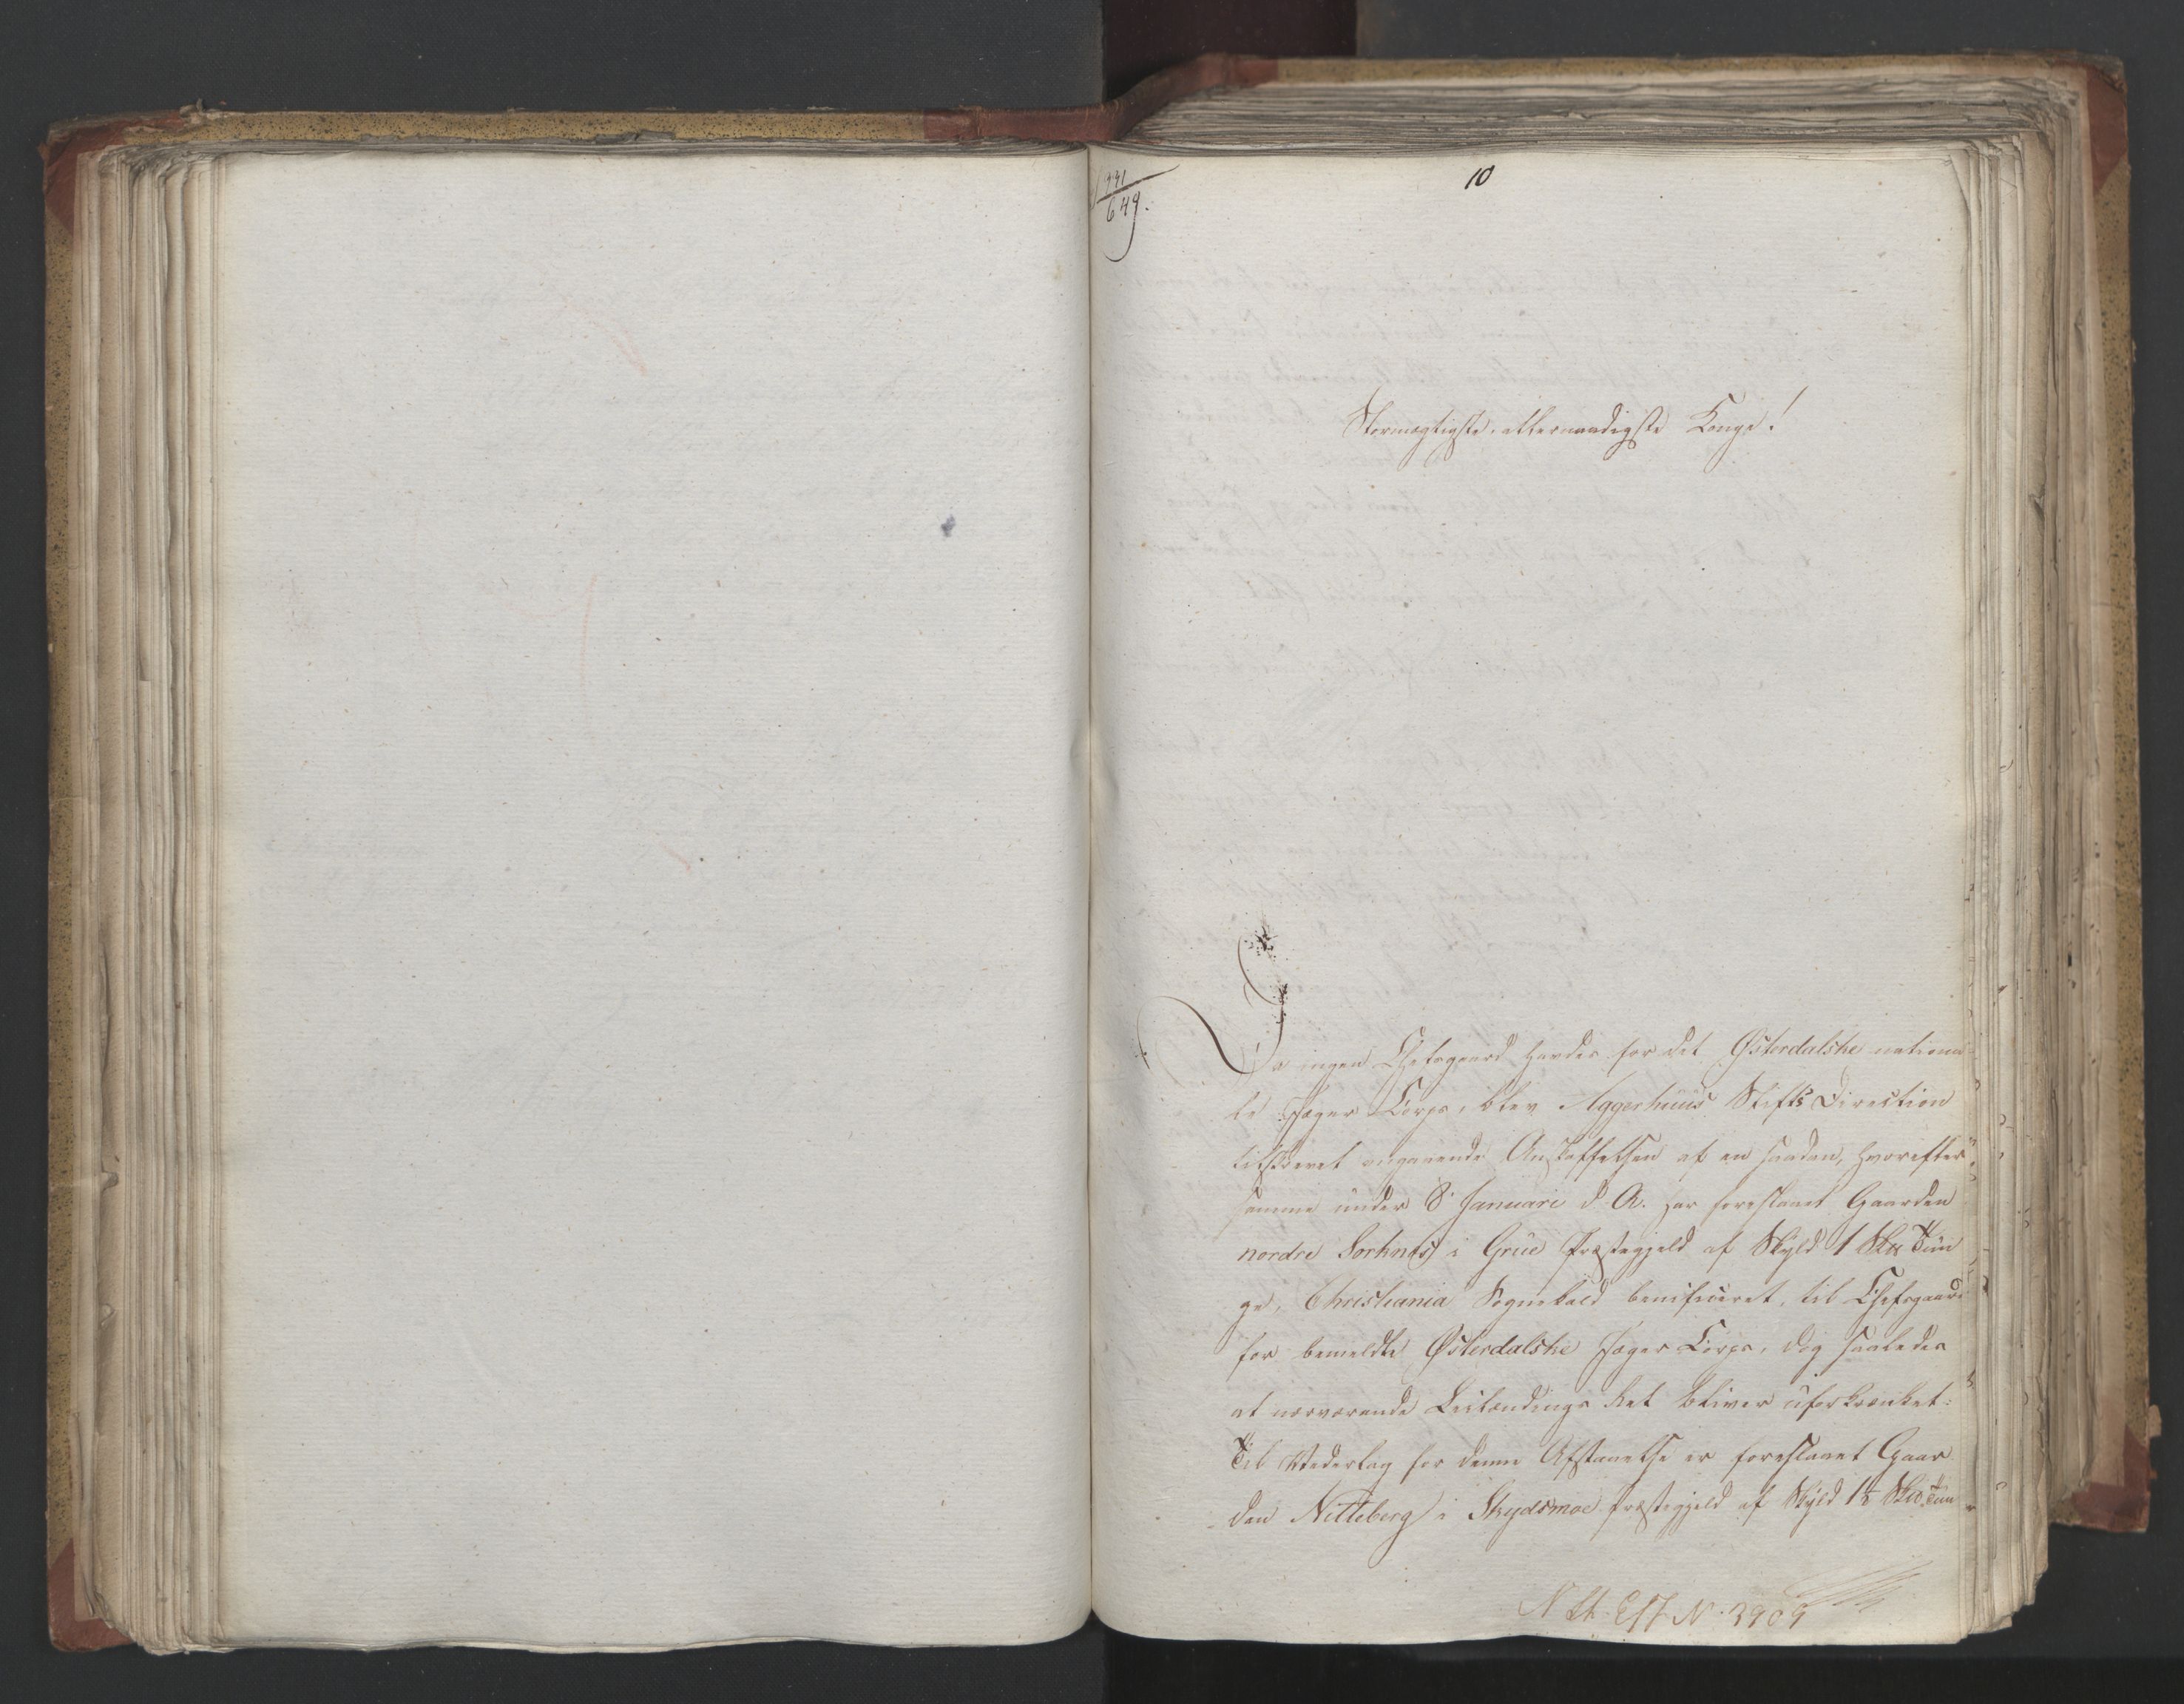 441
649.
10
Stormægtigste, allernaadigste Konge!
Da ingen Chefsgaard havdes for det Østerdalske nationa
le Jæger Corps, blev Aggerhuus Stifts Direction
tilskrevet angaaende Anskaffelsen af en saadan, hvorefter
samme under 8 Januari d. A. har foreslaaet Gaarden
nordre Sorknes i Grue Præstegjeld af Skyld 1 Sk℔ Tun
ge, Christiania Sognekald benificeret, til Chefsgaard
for bemeldte Østerdalske Jæger Corps, dog saaledes
at nærværende Leilændings Ret bliver uforkrænket:
Til Vederlag for denne Afstaaelse er foreslaaet Gaar
den Nitteberg i Skydsmoe Præstegjeld af Skyld 1⅛ Sk℔ Tun
N 3909